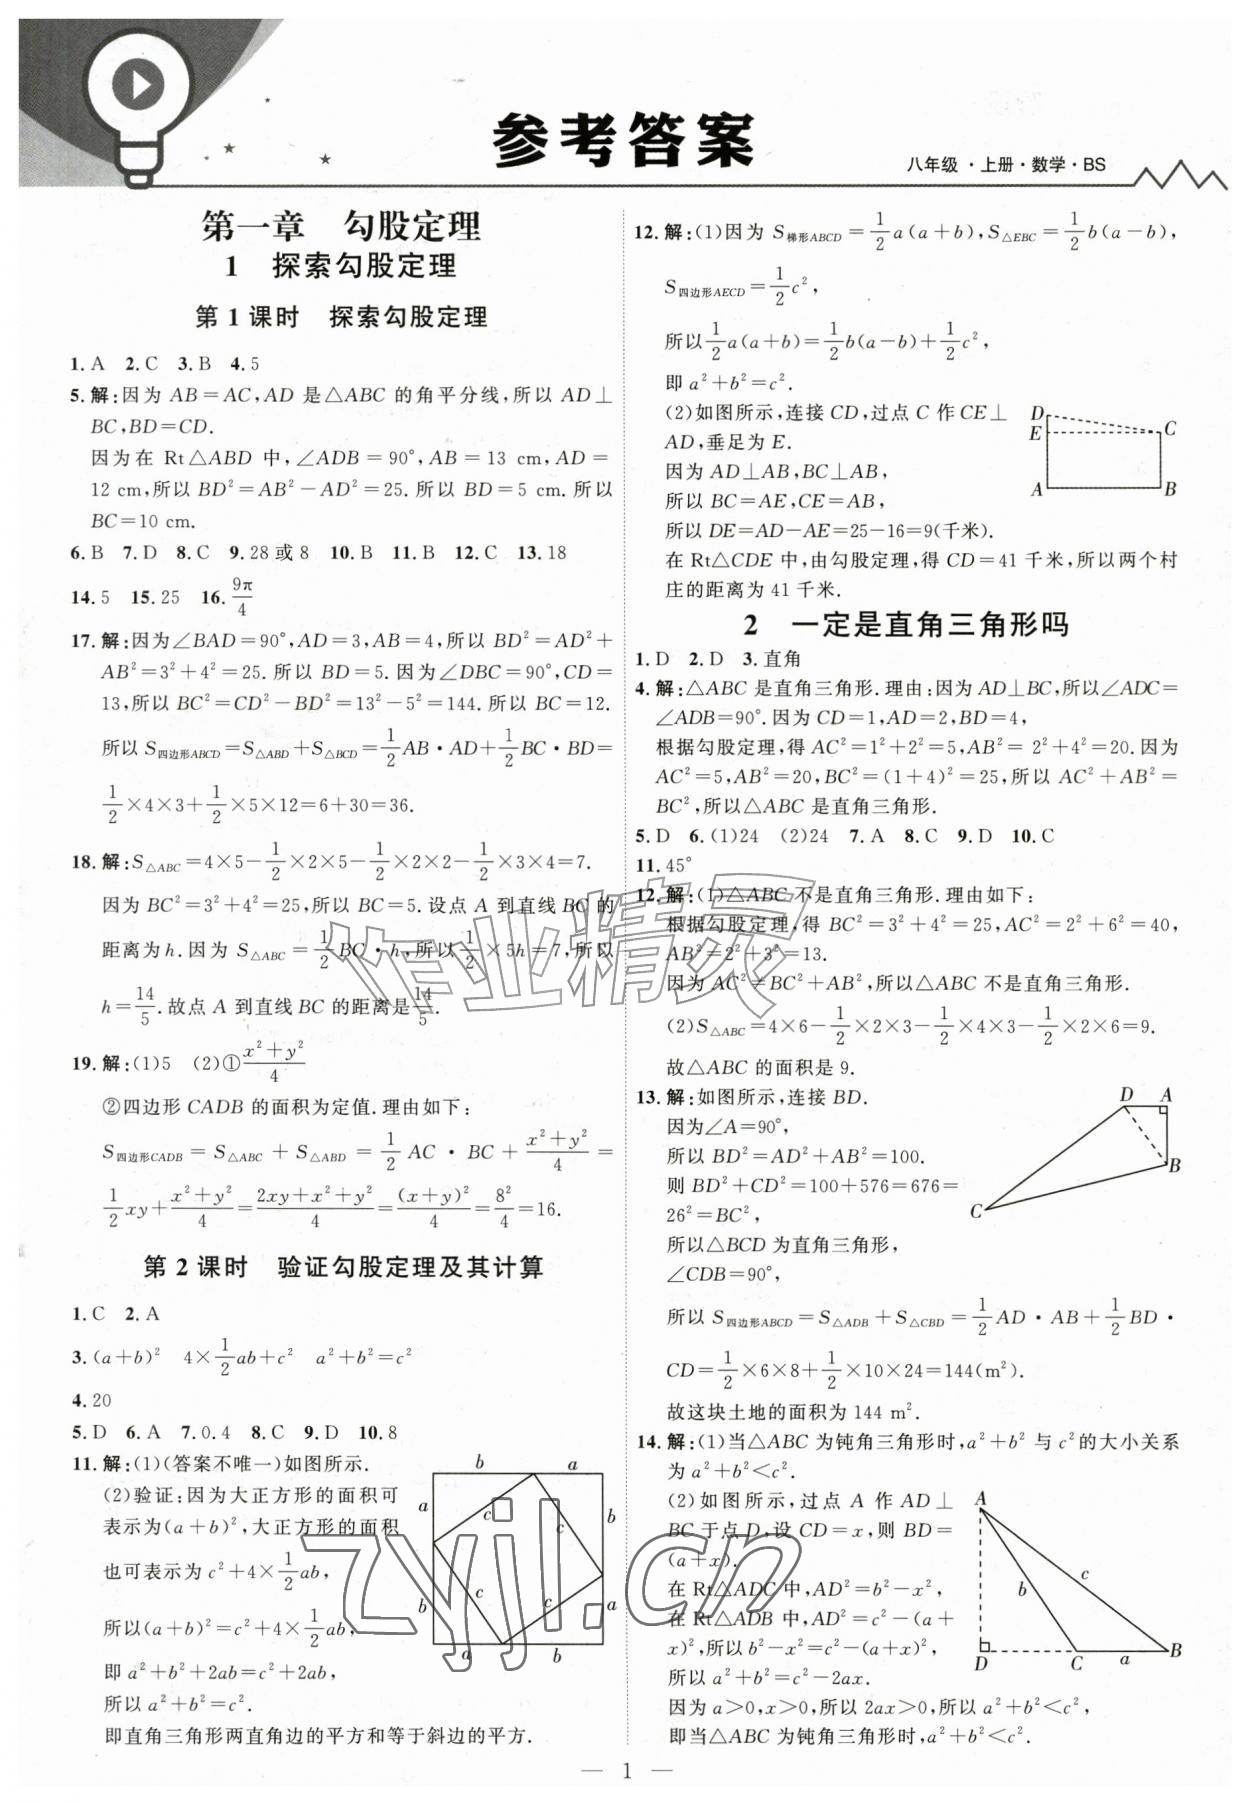 参考答案
八年级·上册·数学·BS
第一章 勾股定理
1 探索勾股定理
第1课时 探索勾股定理
1.A 2.C 3.B 4.5
5.解:因为 AB=AC,AD 是△ABC 的角平分线,所以 AD⊥
BC,BD=CD.
因为在 Rt△ABD 中,∠ADB=90°,AB=13 cm,AD=
12 cm,所以 BD²=AB²-AD²=25.所以 BD=5 cm.所以
BC=10 cm.
6.B 7.D 8.C 9.28或8 10.B 11.B 12.C 13.18
14.5 15.25 16.9π/4
17.解:因为∠BAD=90°,AD=3,AB=4,所以 BD²=AD²+
AB²=3²+4²=25.所以 BD=5.因为∠DBC=90°,CD=
13,所以 BC²=CD²-BD²=13²-5²=144.所以 BC=12.
所以 S四边形ABCD=S△ABD+S△BCD=1/2AB·AD+1/2BC·BD=
1/2×4×3+1/2×5×12=6+30=36.
18.解:S△ABC=4×5-1/2×2×5-1/2×2×2-1/2×3×4=7.
因为 BC²=3²+4²=25,所以 BC=5.设点 A 到直线 BC 的
距离为 h.因为 S△ABC=1/2BC·h,所以1/2×5h=7,所以
h=14/5.故点 A 到直线 BC 的距离是14/5.
19.解:(1)5 (2)①(x²+y²)/4
②四边形 CADB 的面积为定值.理由如下:
S四边形CADB=S△ABC+S△ABD=1/2AC·BC+(x²+y²)/4=
1/2xy+(x²+y²)/4=(2xy+x²+y²)/4=(x+y)²/4=8²/4=16.
第2课时 验证勾股定理及其计算
1.C 2.A
3.(a+b)² 4×1/2ab+c² a²+b²=c²
4.20
5.D 6.A 7.0.4 8.C 9.D 10.8
11.解:(1)(答案不唯一)如图所示.
(2)验证:因为大正方形的面积可
表示为(a+b)²,大正方形的面积
也可表示为 c²+4×1/2ab,
所以(a+b)²=c²+4×1/2ab,
即 a²+b²+2ab=c²+2ab,
所以 a²+b²=c².
即直角三角形两直角边的平方和等于斜边的平方.
b a
a b
c c
c c
b a
a b
12.解:(1)因为 S梯形ABCD=1/2a(a+b),S△EBC=1/2b(a-b),
S四边形AECD=1/2c²,
所以1/2a(a+b)=1/2b(a-b)+1/2c²,
即 a²+b²=c².
(2)如图所示,连接 CD,过点 C 作 CE⊥
AD,垂足为 E.
因为 AD⊥AB,BC⊥AB,
所以 BC=AE,CE=AB,
所以 DE=AD-AE=25-16=9(千米).
在 Rt△CDE 中,由勾股定理,得 CD=41 千米,所以两个村
庄的距离为 41 千米.
D
E C
A B
2 一定是直角三角形吗
1.D 2.D 3.直角
4.解:△ABC 是直角三角形.理由:因为 AD⊥BC,所以∠ADC=
∠ADB=90°.因为 CD=1,AD=2,BD=4,
根据勾股定理,得 AC²=1²+2²=5,AB²=2²+4²=20.因为
AC²=5,AB²=20,BC²=(1+4)²=25,所以 AC²+AB²=
BC²,所以△ABC 是直角三角形.
5.D 6.(1)24 (2)24 7.A 8.C 9.D 10.C
11.45°
12.解:(1)△ABC 不是直角三角形.理由如下:
根据勾股定理,得 BC²=3²+4²=25,AC²=2²+6²=40,
AB²=2²+3²=13.
因为 AC²≠BC²+AB²,所以△ABC 不是直角三角形.
(2)S△ABC=4×6-1/2×2×3-1/2×4×3-1/2×2×6=9.
故△ABC 的面积是 9.
13.解:如图所示,连接 BD.
因为∠A=90°,
所以 BD²=AD²+AB²=100.
则 BD²+CD²=100+576=676=
26²=BC²,
所以△BCD 为直角三角形,
∠CDB=90°,
所以 S四边形ABCD=S△ADB+S△CBD=1/2AD·AB+1/2BD·
CD=1/2×6×8+1/2×10×24=144(m²).
故这块土地的面积为 144 m².
D A
B
C
14.解:(1)当△ABC 为钝角三角形时,a²+b² 与 c²的大小关系
为 a²+b²<c².
(2)如图所示,过点 A 作 AD⊥
BC 于点 D,设 CD=x,则 BD=
(a+x).
在 Rt△ADC 中,AD²=b²-x²,
在 Rt△ADB 中,AD²=c²-(a+
x)²,所以 b²-x²=c²-(a+x)²,
所以 a²+b²=c²-2ax.
因为 a>0,x>0,所以 2ax>0,所以 a²+b²<c²,
即当△ABC 为钝角三角形时,a²+b²<c².
A
b c
D C a B
作业精灵
zyjl.cn
1